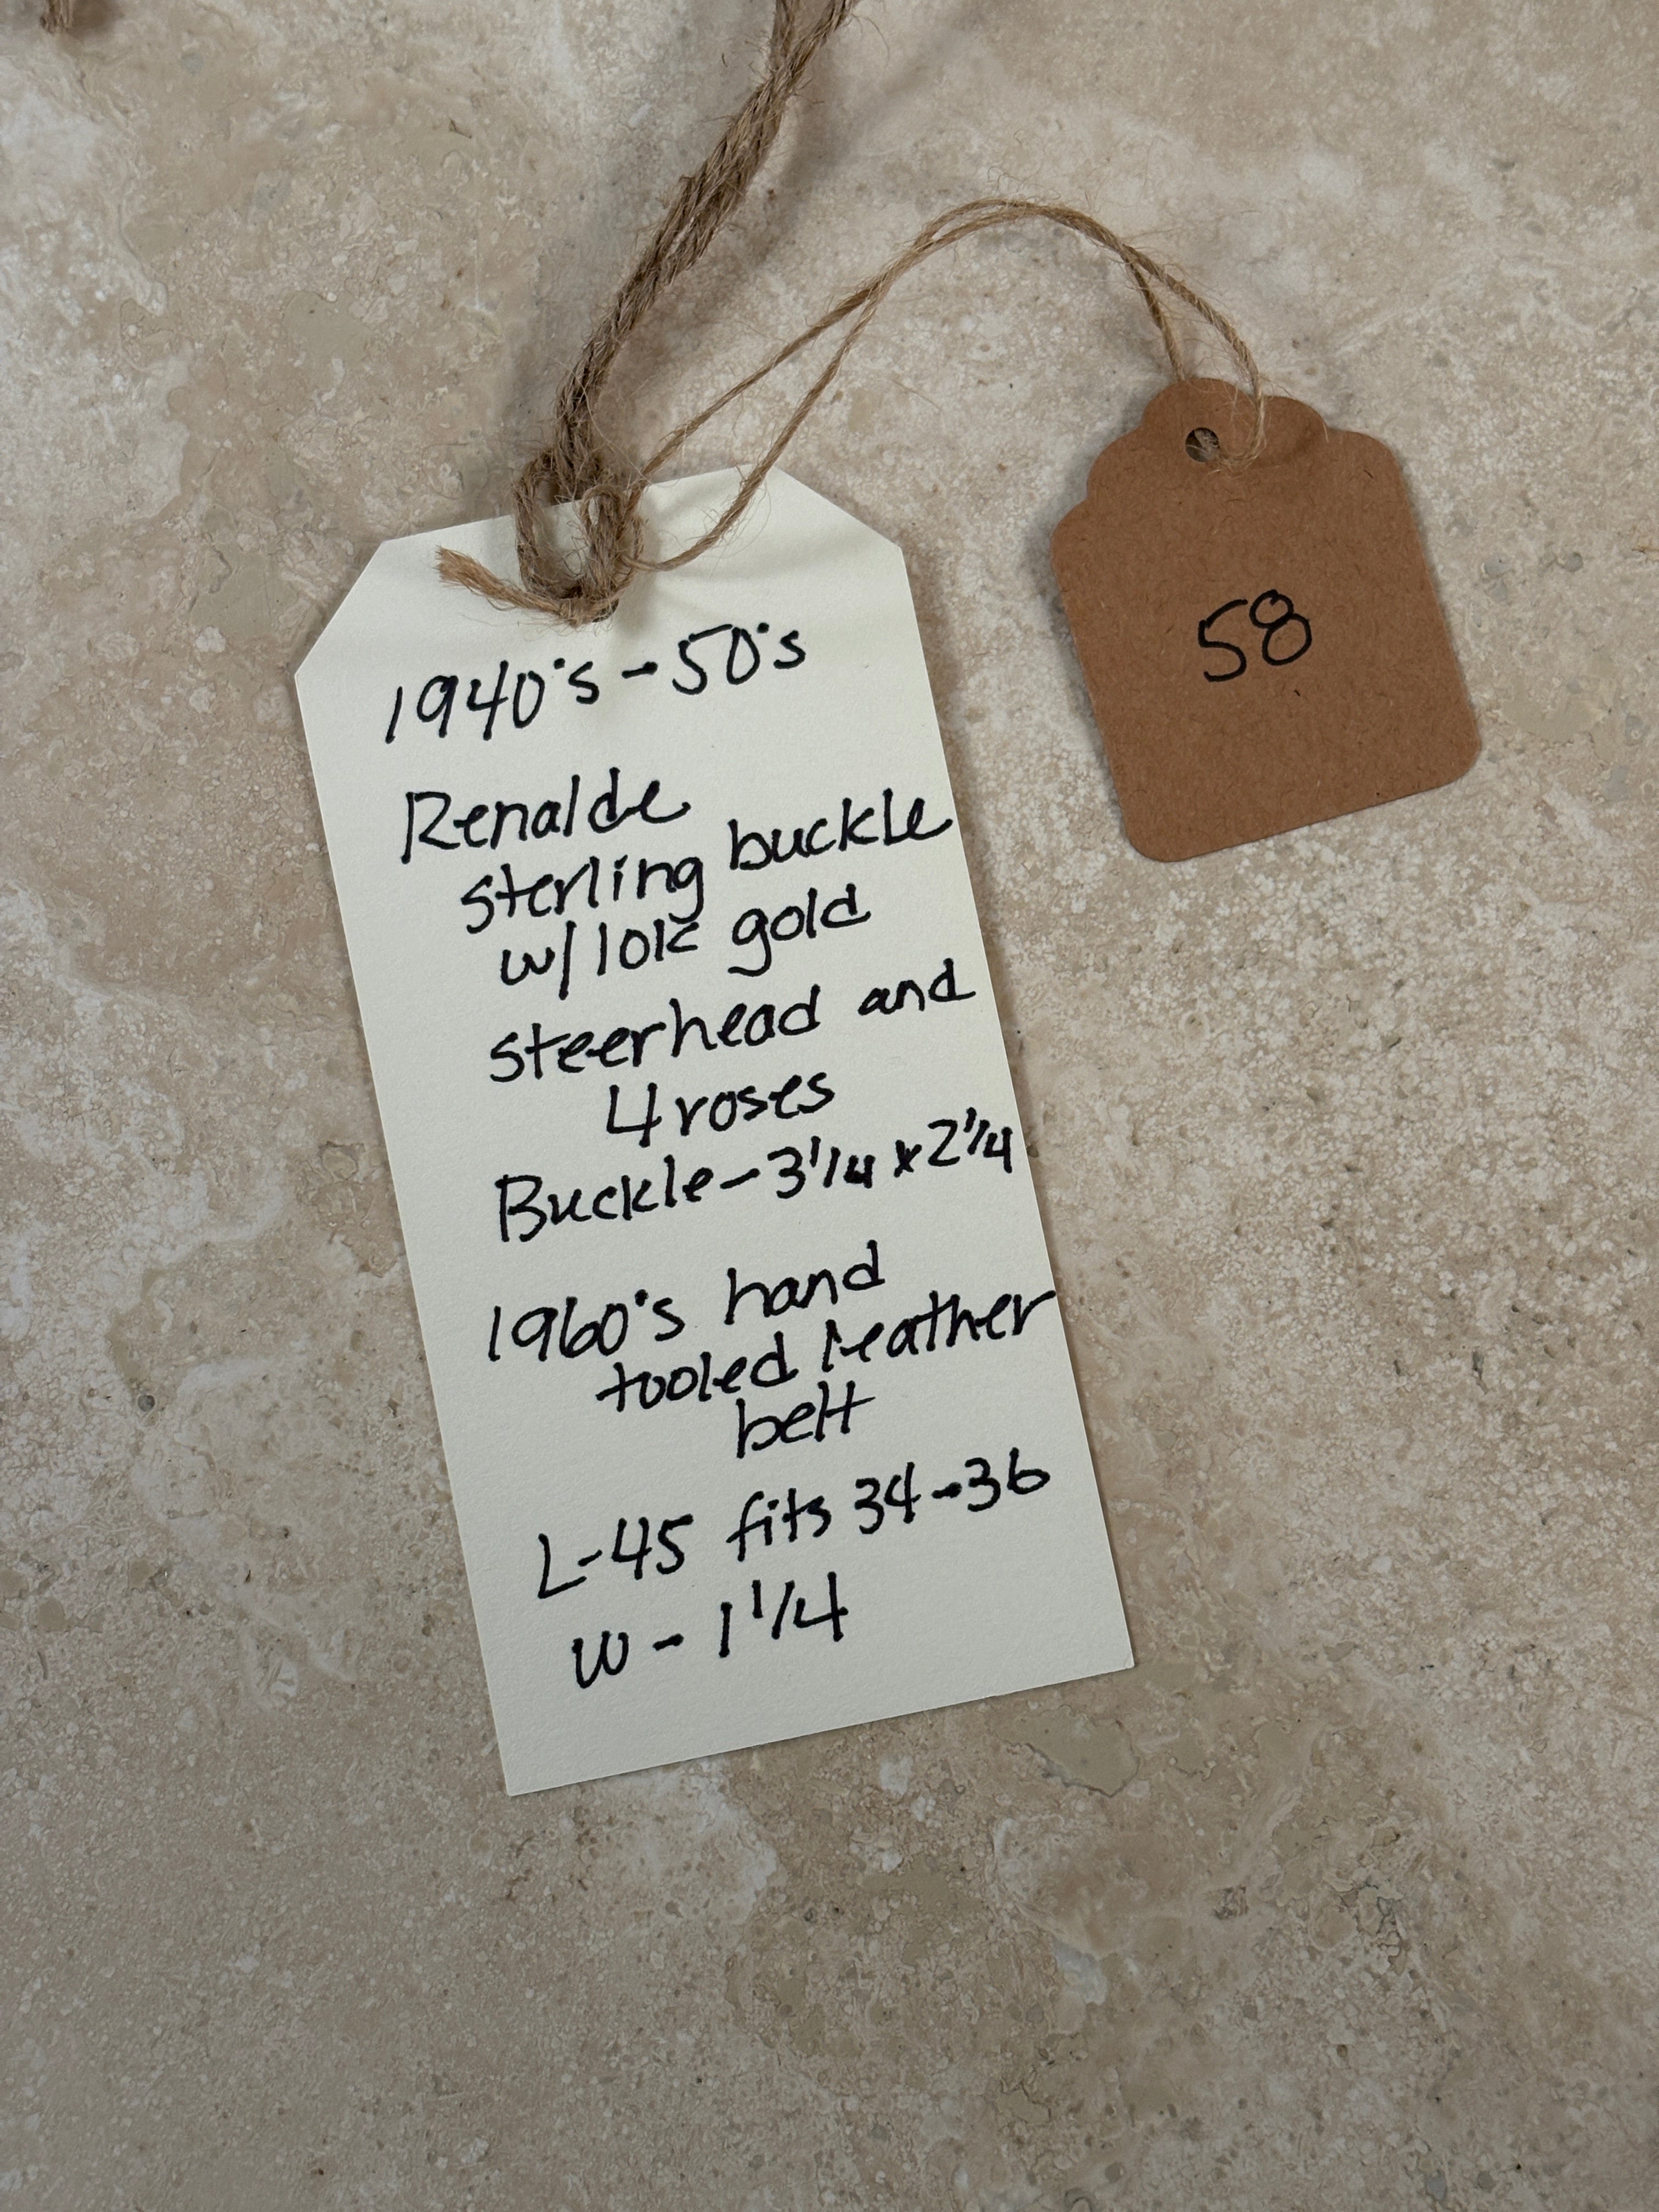 1940's - 50's
Renalde
sterling buckle
w/ 10K gold
steerhead and
4 roses
Buckle - 3 1/4 x 2 1/4
1960's hand
tooled leather
belt
L - 45 fits 34 - 36
W - 1 1/4
58